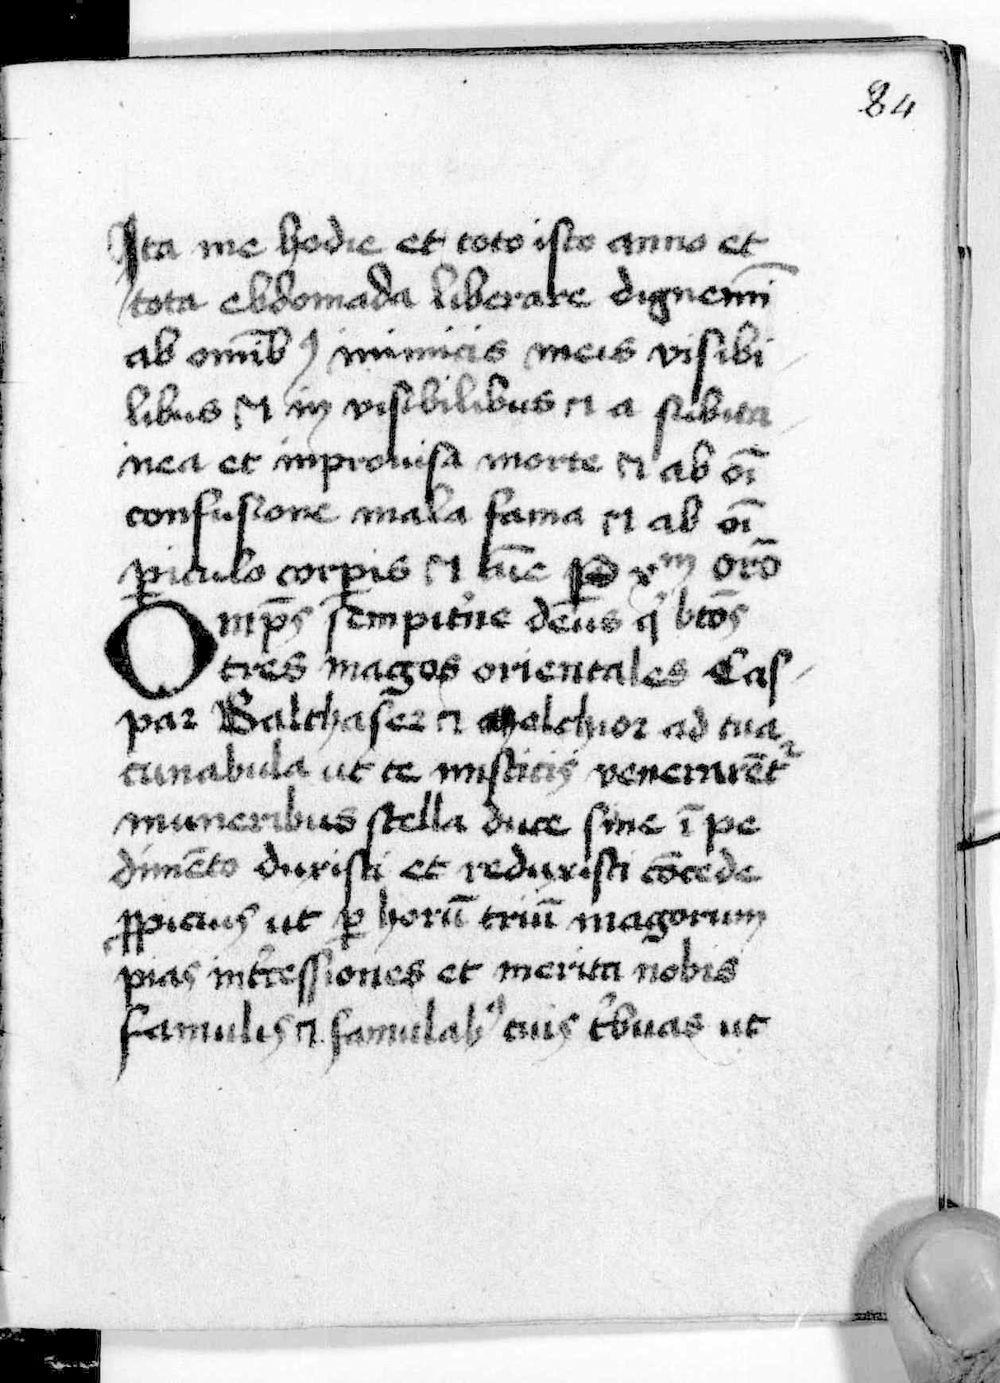 84
Ita me hodie et toto isto anno et
tota ebdomada liberare dignem̄i
ab om̄ibꝰ inimicis meis visibi
libus ⁊ in visibilibus ⁊ a subita
nea et inprouisa morte ⁊ ab oī
confusione mala fama ⁊ ab oī
ꝑiculo corꝑis ⁊ aīe P xᵐ Orō
Omp̄s sempit̓ne deus q̓ btōs
tres magos orientales Cas
par Balthaser ⁊ Melchior ad tua
cunabula ut te misticis venerarēt᷑
muneribus stella duce sine ī pe
dimēto duxisti et reduxisti cōcede
ꝓpicius ut ꝑ horū triū magorum
pias int̓cessiones et merita nobis
famulis ⁊ famulabꝰ tuis t̓buas ut